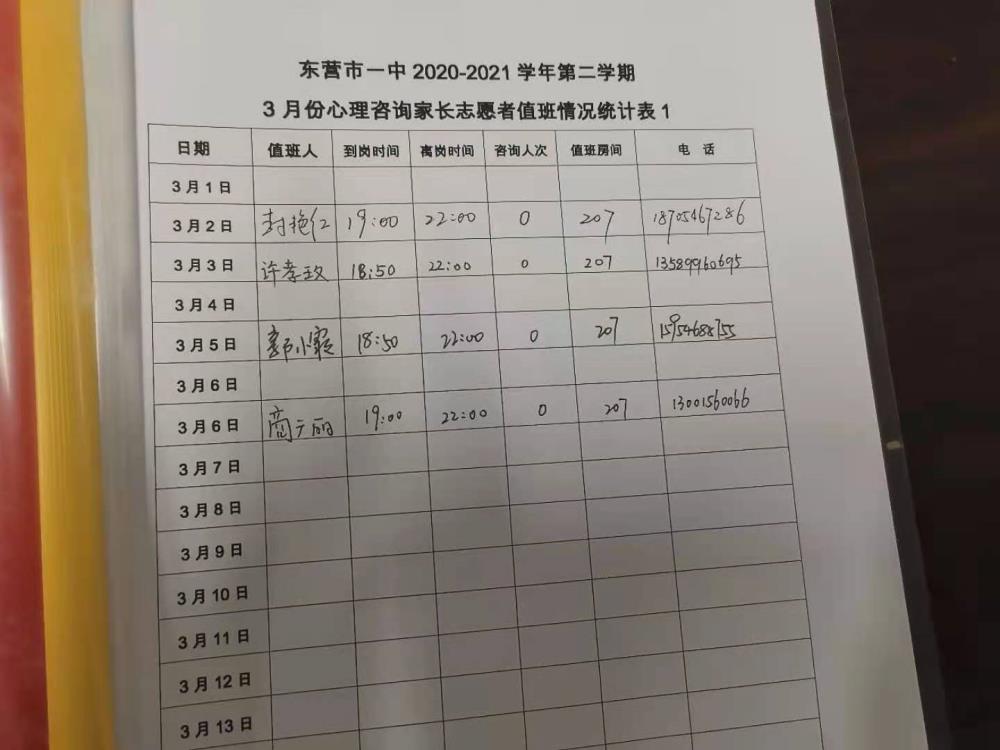 东营市一中2020-2021学年第二学期
3月份心理咨询家长志愿者值班情况统计表1
日期 值班人 到岗时间 离岗时间 咨询人次 值班房间 电 话
3月1日
3月2日 封艳红 19:00 22:00 0 207 18705467286
3月3日 许孝政 18:50 22:00 0 207 13589960695
3月4日
3月5日 郭小霞 18:50 22:00 0 207
3月6日
3月6日 商广丽 19:00 22:00 0 207 13001560066
3月7日
3月8日
3月9日
3月10日
3月11日
3月12日
3月13日